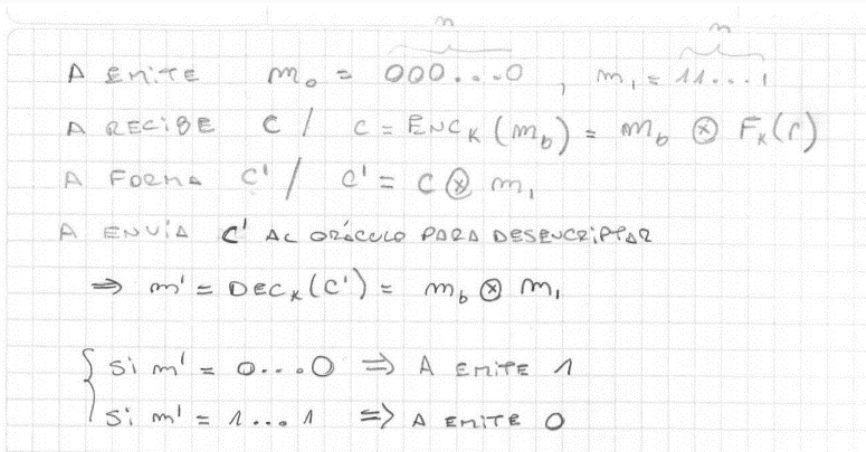 n n
A EMITE m₀ = 000...0 , m₁ = 11...1
A RECIBE C / C = ENC_K (m_b) = m_b ⊗ F_K(r)
A FORMA C' / C' = C ⊗ m₁
A ENVÍA C' AL ORÁCULO PARA DESENCRIPTAR
⇒ m' = DEC_K (C') = m_b ⊗ m₁
{ Si m' = 0...0 ⇒ A EMITE 1
Si m' = 1...1 ⇒ A EMITE 0